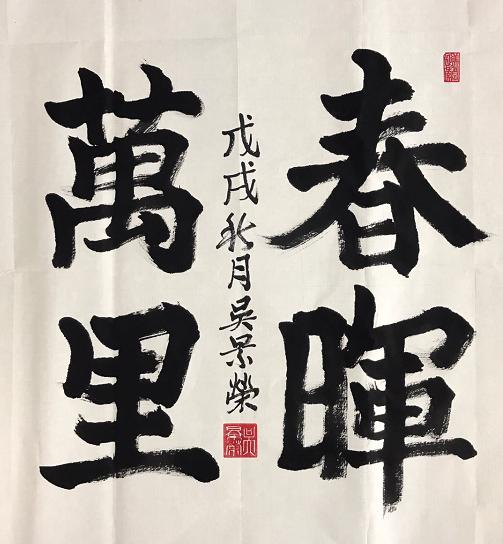 春暉
萬里
戊戌秋月吳景榮